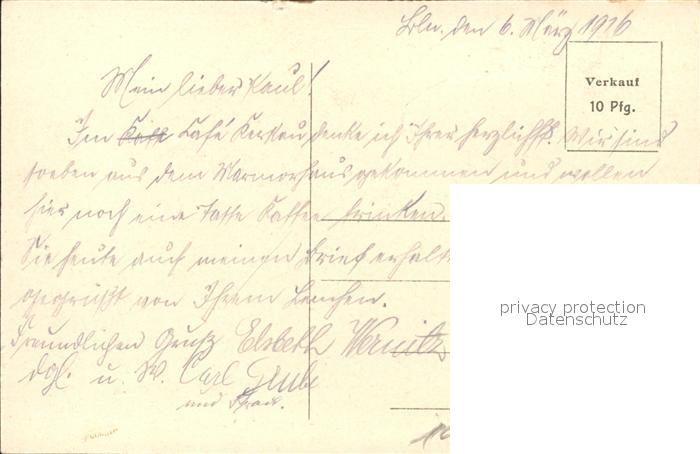 Bln. den 6. März 1916
Verkauf
10 Pfg.
Mein lieber Paul!
Im Café Kerkau denke ich Ihrer herzlichst. Wir sind
soeben aus dem Marmorhaus gekommen und wollen
hier noch eine Tasse Kaffee trinken.
Sie heute auch meinen Brief
gegrüßt von Ihrem Lenchen.
Freundlichen Gruß Elsbeth
dgl. u. W. Carl
und Frau.
privacy protection
Datenschutz